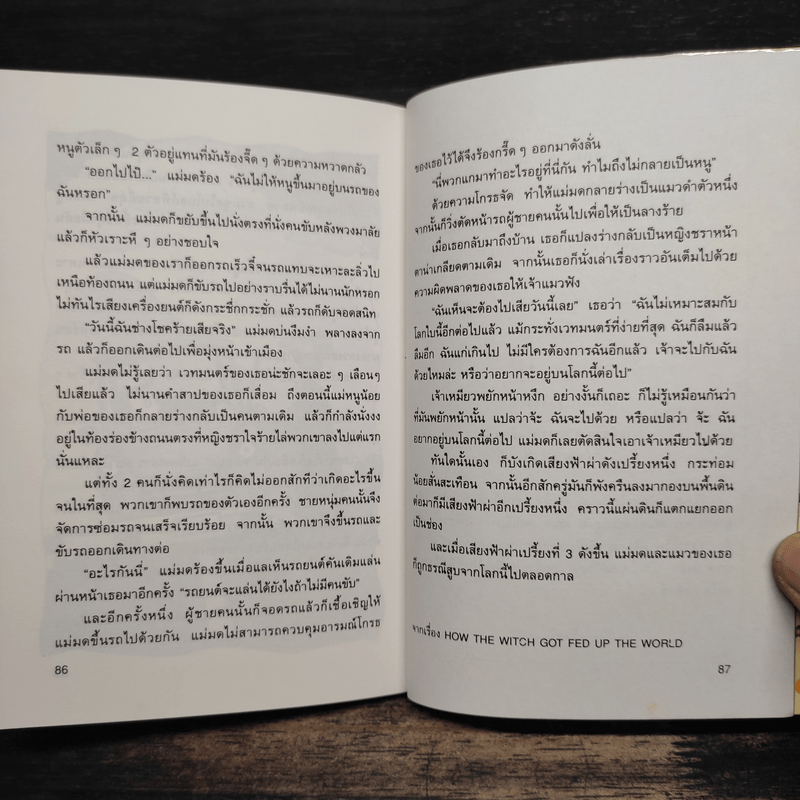 หนูตัวเล็ก ๆ 2 ตัวอยู่แทนที่มันร้องจี๊ด ๆ ด้วยความหวาดกลัว
"ออกไปไป๊..." แม่มดร้อง "ฉันไม่ให้หนูขึ้นมาอยู่บนรถของ
ฉันหรอก"
จากนั้น แม่มดก็ขยับขึ้นไปนั่งตรงที่นั่งคนขับหลังพวงมาลัย
แล้วก็หัวเราะหึ ๆ อย่างชอบใจ
แล้วแม่มดของเราก็ออกรถเร็วจี๋จนรถแทบจะเหาะละลิ่วไป
เหนือท้องถนน แต่แม่มดก็ขับรถไปอย่างราบรื่นได้ไม่นานนักหรอก
ไม่ทันไรเสียงเครื่องยนต์ก็ดังกระชึ่กกระชั่ก แล้วรถก็ดับจอดสนิท
"วันนี้ฉันช่างโชคร้ายเสียจริง" แม่มดบ่นงึมงำ พลางลงจาก
รถ แล้วก็ออกเดินต่อไปเพื่อมุ่งหน้าเข้าเมือง
แม่มดไม่รู้เลยว่า เวทมนตร์ของเธอน่ะชักจะเลอะ ๆ เลือนๆ
ไปเสียแล้ว ไม่นานคำสาปของเธอก็เสื่อม ถึงตอนนี้แม่หนูน้อย
กับพ่อของเธอก็กลายร่างกลับเป็นคนตามเดิม แล้วก็กำลังนั่งงง
อยู่ในท้องร่องข้างถนนตรงที่หญิงชราใจร้ายไล่พวกเขาลงไปแต่แรก
นั่นแหละ
แต่ทั้ง 2 คนก็นั่งคิดเท่าไรก็คิดไม่ออกสักทีว่าเกิดอะไรขึ้น
จนในที่สุด พวกเขาก็พบรถของตัวเองอีกครั้ง ชายหนุ่มคนนั้นจึง
จัดการซ่อมรถจนเสร็จเรียบร้อย จากนั้น พวกเขาจึงขึ้นรถและ
ขับรถออกเดินทางต่อ
"อะไรกันนี่" แม่มดร้องขึ้นเมื่อแลเห็นรถยนต์คันเดิมแล่น
ผ่านหน้าเธอมาอีกครั้ง "รถยนต์จะแล่นได้ยังไงถ้าไม่มีคนขับ"
และอีกครั้งหนึ่ง ผู้ชายคนนั้นก็จอดรถแล้วก็เชื้อเชิญให้
แม่มดขึ้นรถไปด้วยกัน แม่มดไม่สามารถควบคุมอารมณ์โกรธ
86
ของเธอไว้ได้จึงร้องกรี๊ด ๆ ออกมาดังลั่น
"นี่พวกแกมาทำอะไรอยู่ที่นี่กัน ทำไมถึงไม่กลายเป็นหนู"
ด้วยความโกรธจัด ทำให้แม่มดกลายร่างเป็นแมวดำตัวหนึ่ง
จากนั้นก็วิ่งตัดหน้ารถผู้ชายคนนั้นไปเพื่อให้เป็นลางร้าย
เมื่อเธอกลับมาถึงบ้าน เธอก็แปลงร่างกลับเป็นหญิงชราหน้า
ตาน่าเกลียดตามเดิม จากนั้นเธอก็นั่งเล่าเรื่องราวอันเต็มไปด้วย
ความผิดพลาดของเธอให้เจ้าแมวฟัง
"ฉันเห็นจะต้องไปเสียวันนี้เลย" เธอว่า "ฉันไม่เหมาะสมกับ
โลกใบนี้อีกต่อไปแล้ว แม้กระทั่งเวทมนตร์ที่ง่ายที่สุด ฉันก็ลืมแล้ว
ลืมอีก ฉันแก่เกินไป ไม่มีใครต้องการฉันอีกแล้ว เจ้าจะไปกับฉัน
ด้วยไหมล่ะ หรือว่าอยากจะอยู่บนโลกนี้ต่อไป"
เจ้าเหมียวพยักหน้าหงึก อย่างงั้นก็เถอะ ก็ไม่รู้เหมือนกันว่า
ที่มันพยักหน้านั้น แปลว่าจ้ะ ฉันจะไปด้วย หรือแปลว่า จ้ะ ฉัน
อยากอยู่บนโลกนี้ต่อไป แม่มดก็เลยตัดสินใจเอาเจ้าเหมียวไปด้วย
ทันใดนั้นเอง ก็บังเกิดเสียงฟ้าผ่าดังเปรี้ยงหนึ่ง กระท่อม
น้อยสั่นสะเทือน จากนั้นอีกสักครู่มันก็พังครืนลงมากองบนพื้นดิน
ต่อมาก็มีเสียงฟ้าผ่าอีกเปรี้ยงหนึ่ง คราวนี้แผ่นดินก็แตกแยกออก
เป็นช่อง
และเมื่อเสียงฟ้าผ่าเปรี้ยงที่ 3 ดังขึ้น แม่มดและแมวของเธอ
ก็ถูกธรณีสูบจากโลกนี้ไปตลอดกาล
จากเรื่อง HOW THE WITCH GOT FED UP THE WORLD
87